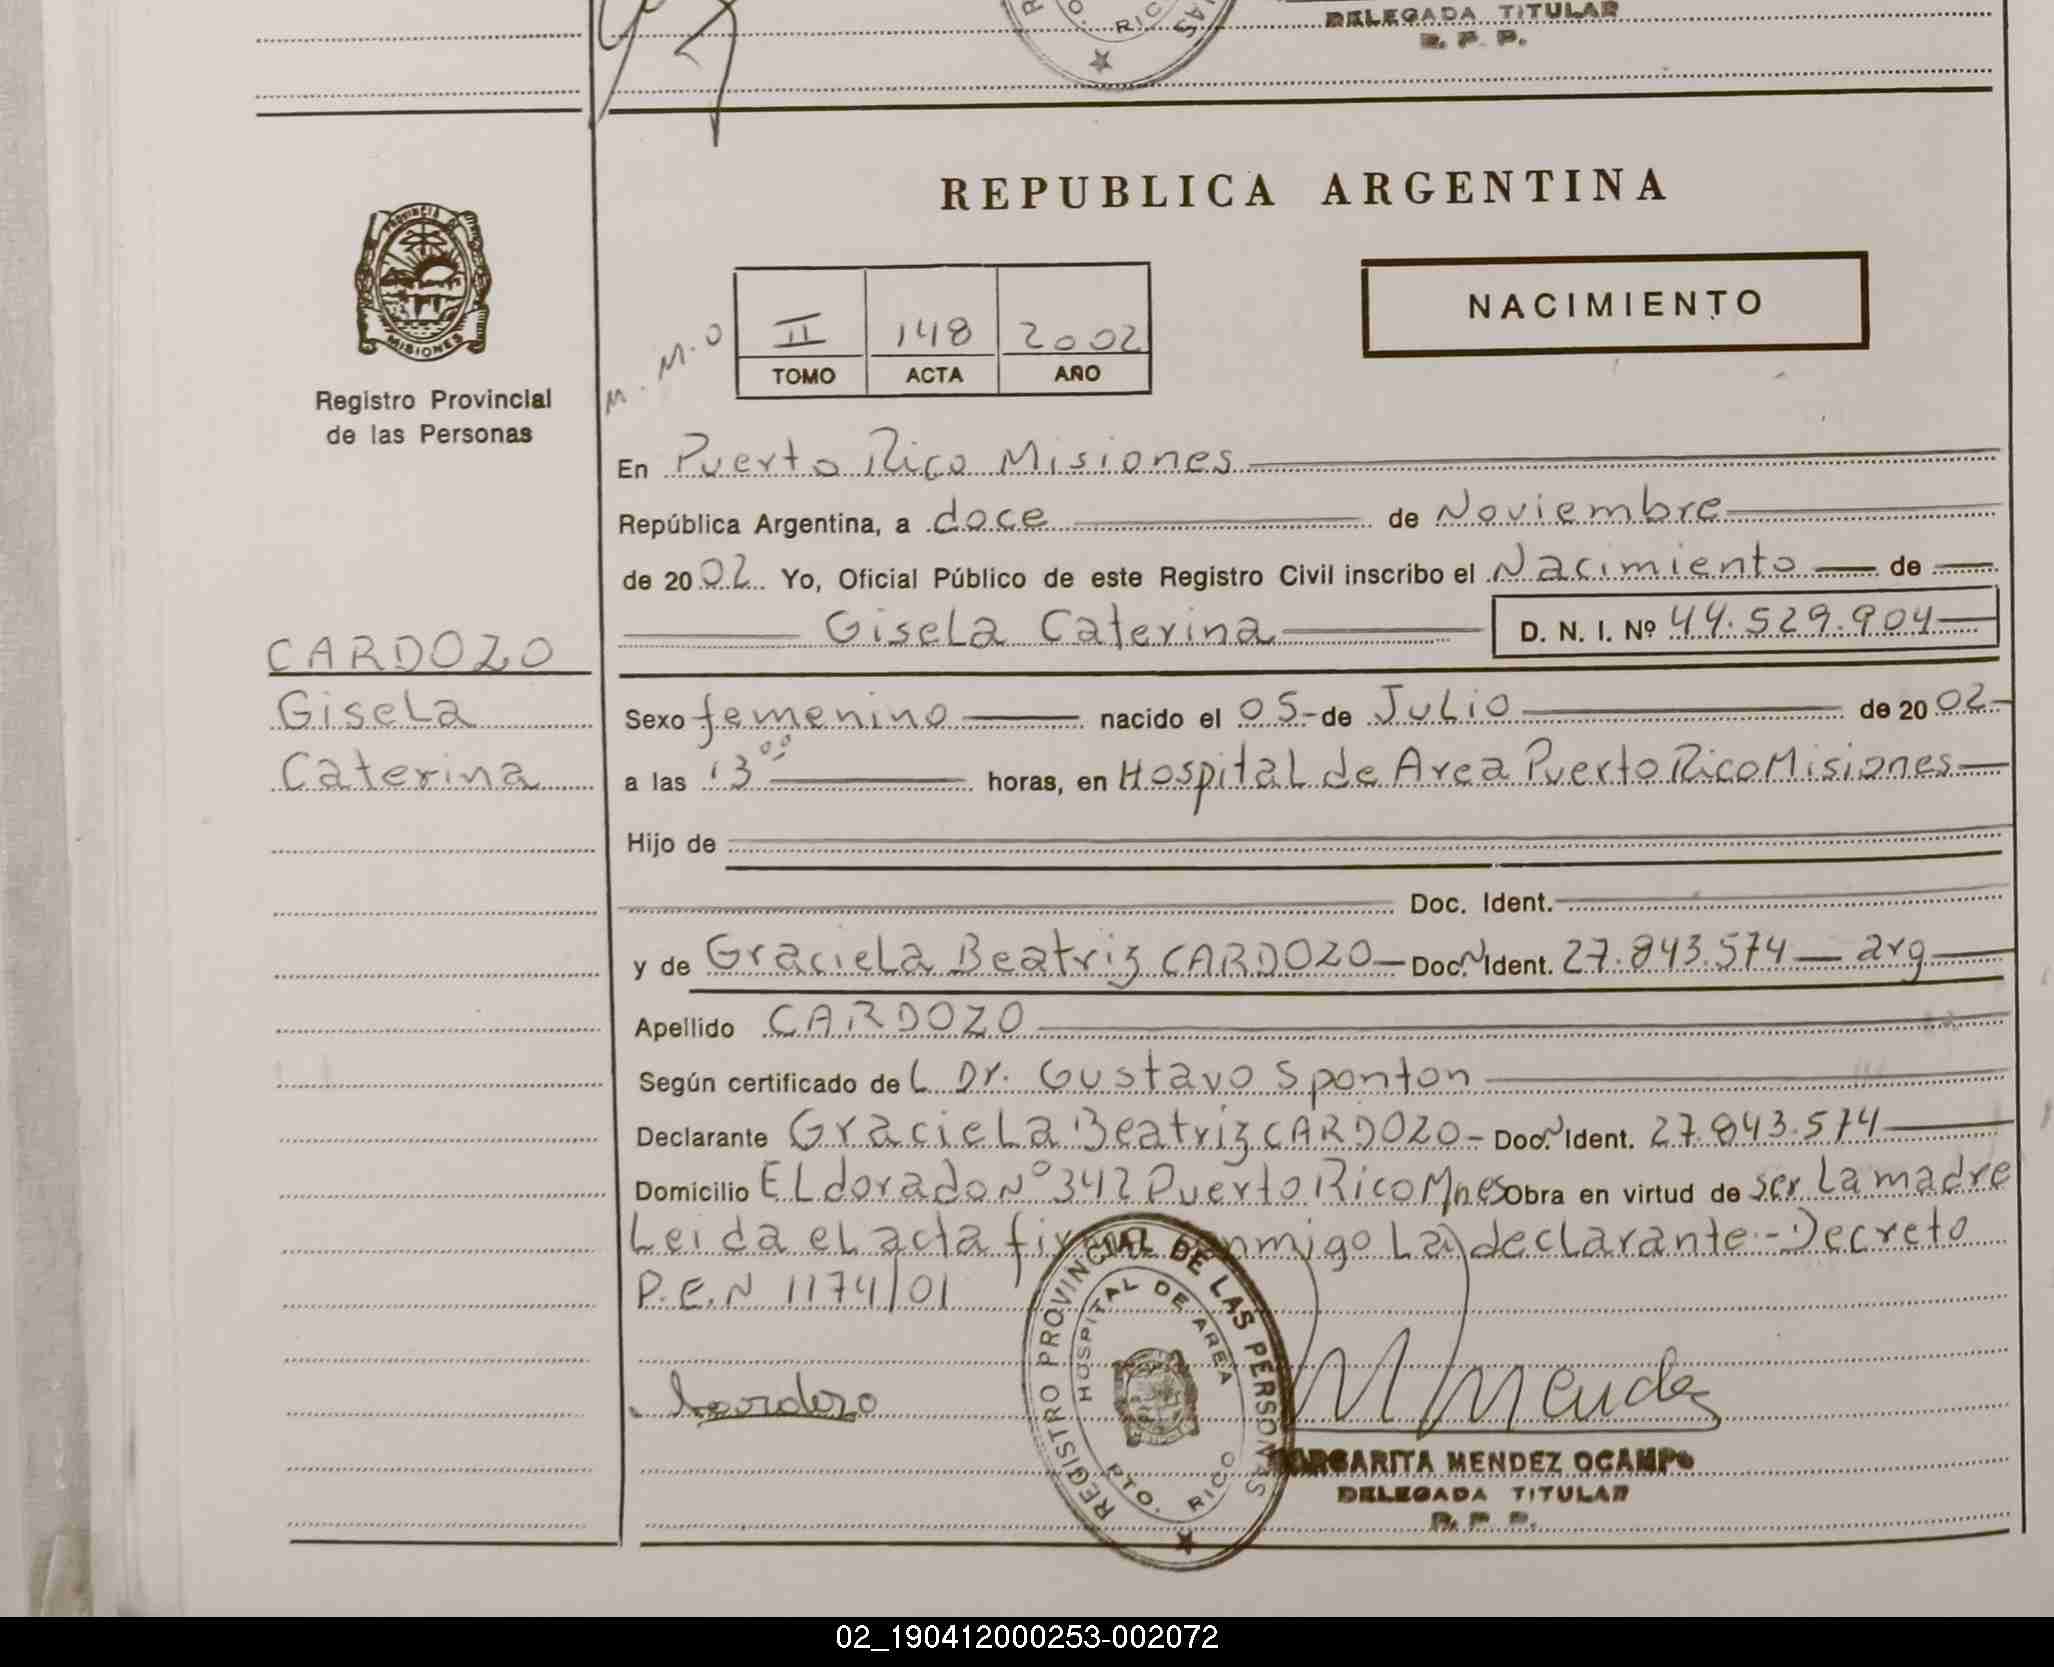 DELEGADA TITULAR
R. P. P.
RICO
PROVINCIA DE
MISIONES
Registro Provincial
de las Personas
REPUBLICA ARGENTINA
NACIMIENTO
M.M.O
II 148 2002
TOMO ACTA AÑO
En Puerto Rico Misiones
República Argentina, a doce de Noviembre
de 2002 Yo, Oficial Público de este Registro Civil inscribo el Nacimiento de
Gisela Caterina D. N. I. Nº 44.529.904
CARDOZO
Gisela
Caterina
Sexo femenino nacido el 05- de Julio de 2002-
a las 13⁰⁰ horas, en Hospital de Area Puerto Rico Misiones
Hijo de
Doc. Ident.
y de Graciela Beatriz CARDOZO - Doc. N Ident. 27.843.574 - arg
Apellido CARDOZO
Según certificado del Dr. Gustavo Sponton
Declarante Graciela Beatriz CARDOZO - Doc. N Ident. 27.843.574
Domicilio ELdorado Nº 342 Puerto Rico Mnes Obra en virtud de ser La madre
Leida el acta conmigo La declarante - Decreto
P.E.N 1174/01
Cardozo
REGISTRO PROVINCIAL DE LAS PERSONAS
HOSPITAL DE AREA
PTO. RICO
M Mendez
MARGARITA MENDEZ OCAMPO
DELEGADA TITULAR
R. P. P.
02_190412000253-002072